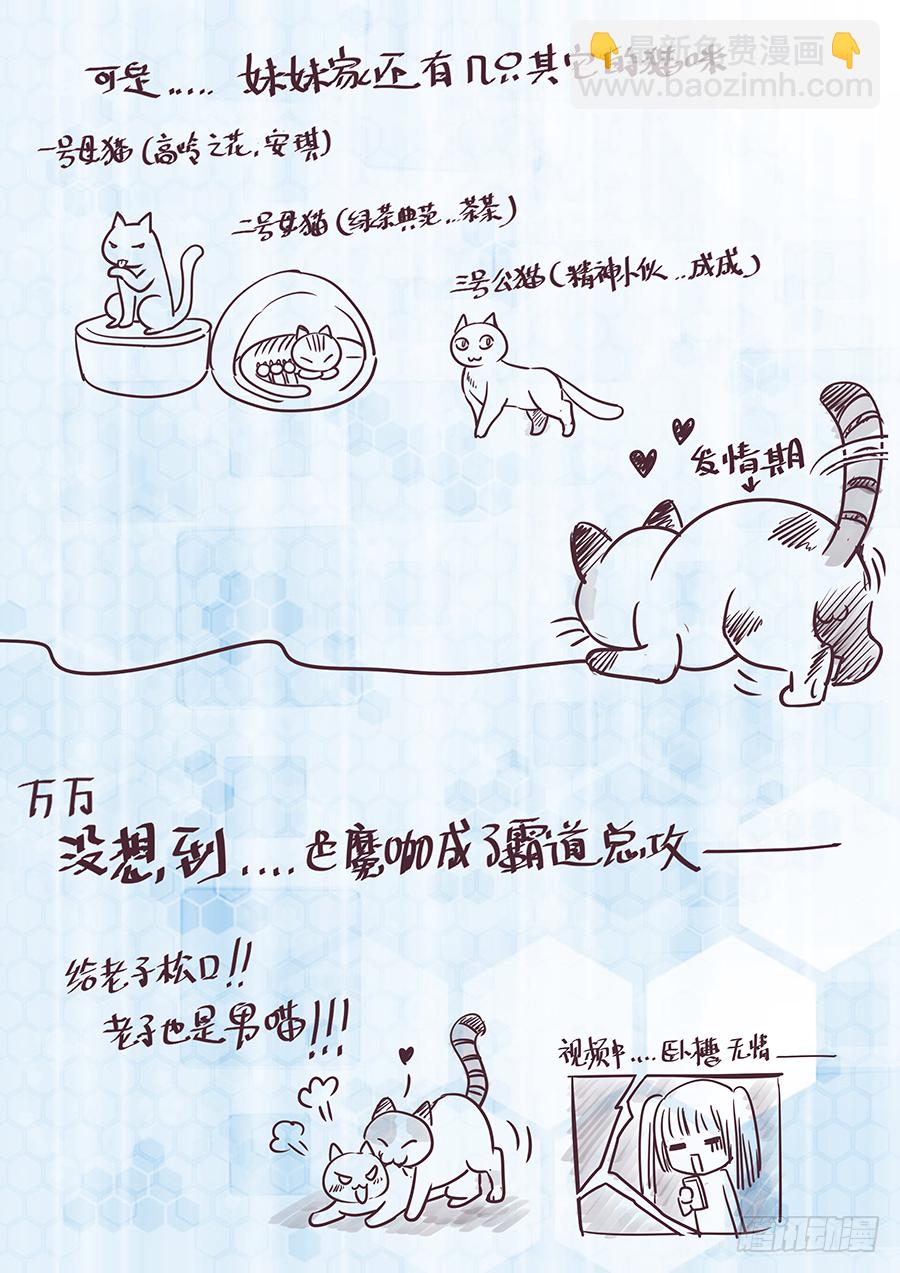 最新免费漫画
www.baozimh.com
可是..... 妹妹家还有几只其它的猫咪
一号母猫(高岭之花,安琪)
二号母猫(绿茶典范..茶茶)
三号公猫(精神小伙..成成)
发情期
万万
没想到....芒魔咖成了霸道总攻——
给老子松口!!
老子也是男喵!!!
视频中....卧槽 无情——
腾讯动漫